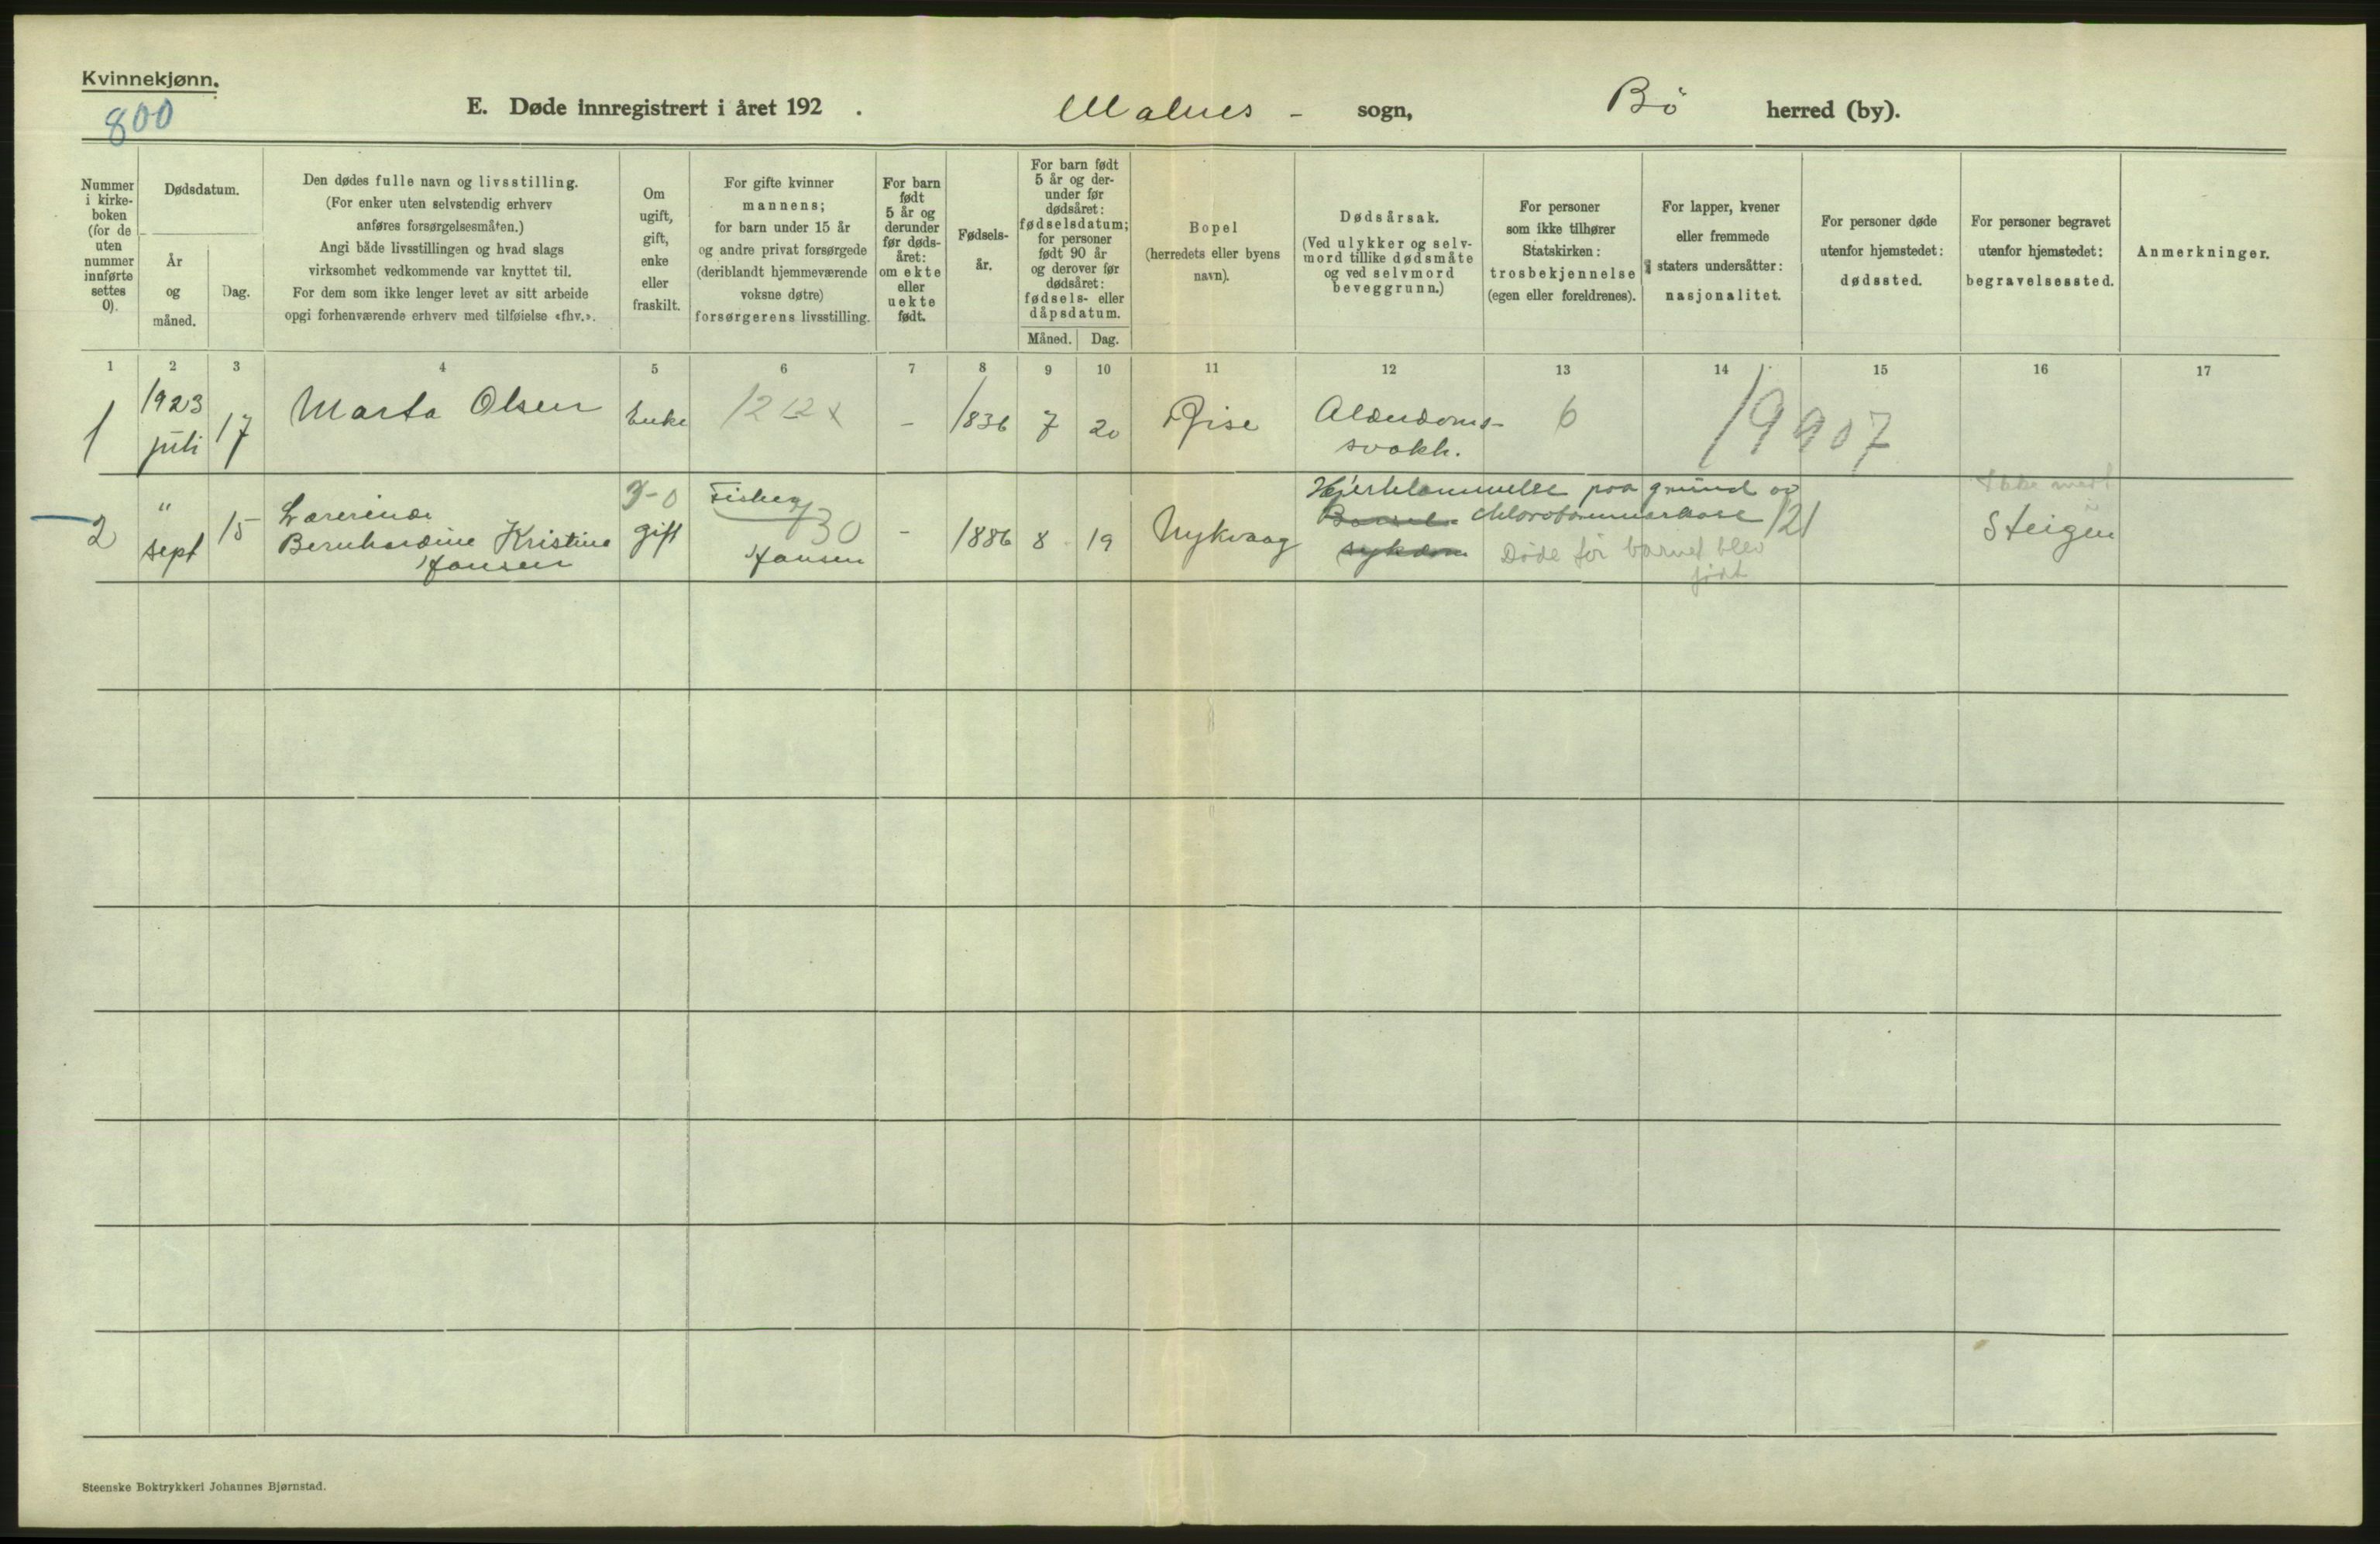 Kvinnekjønn.
800
E. Døde innregistrert i året 192 . Malnes - sogn, Bö herred (by).
Nummer i kirke-boken (for de uten nummer innførte settes 0).
Dødsdatum.
År og måned.
Dag.
Den dødes fulle navn og livsstilling.
(For enker uten selvstendig erhverv
anføres forsørgelsesmåten.)
Angi både livsstillingen og hvad slags
virksomhet vedkommende var knyttet til.
For dem som ikke lenger levet av sitt arbeide
opgi forhenværende erhverv med tilføielse «fhv.».
Om
ugift,
gift,
enke
eller
fraskilt.
For gifte kvinner
mannens;
for barn under 15 år
og andre privat forsørgede
(deriblandt hjemmeværende
voksne døtre)
forsørgerens livsstilling.
For barn
født
5 år og
derunder
før døds-
året:
om ekte
eller
uekte
født.
Fødsels-
år.
For barn født
5 år og der-
under før
dødsåret:
fødselsdatum;
for personer
født 90 år
og derover før
dødsåret:
fødsels- eller
dåpsdatum.
Måned. Dag.
Bopel
(herredets eller byens
navn).
Dødsårsak.
(Ved ulykker og selv-
mord tillike dødsmåte
og ved selvmord
beveggrunn.)
For personer
som ikke tilhører
Statskirken:
trosbekjennelse
(egen eller foreldrenes).
For lapper, kvener
eller fremmede
staters undersåtter:
nasjonalitet.
For personer døde
utenfor hjemstedet:
dødssted.
For personer begravet
utenfor hjemstedet:
begravelsessted.
Anmerkninger.
1 2 3 4 5 6 7 8 9 10 11 12 13 14 15 16 17
1 1923 juli 17 Marta Olsen Enke - 1836 7 20 Alderdoms- 6 19907
svakh.
2 " sept 15 Lærerinde gift Fisker 30 - 1886 8 19 Nykvaag Hjertelammelse paa grund av 121 Steigen
Bernhardine Kristine
Jansen Jansen Barsel-
sykdom Døde før barnet blev
født
Steenske Boktrykkeri Johannes Bjørnstad.